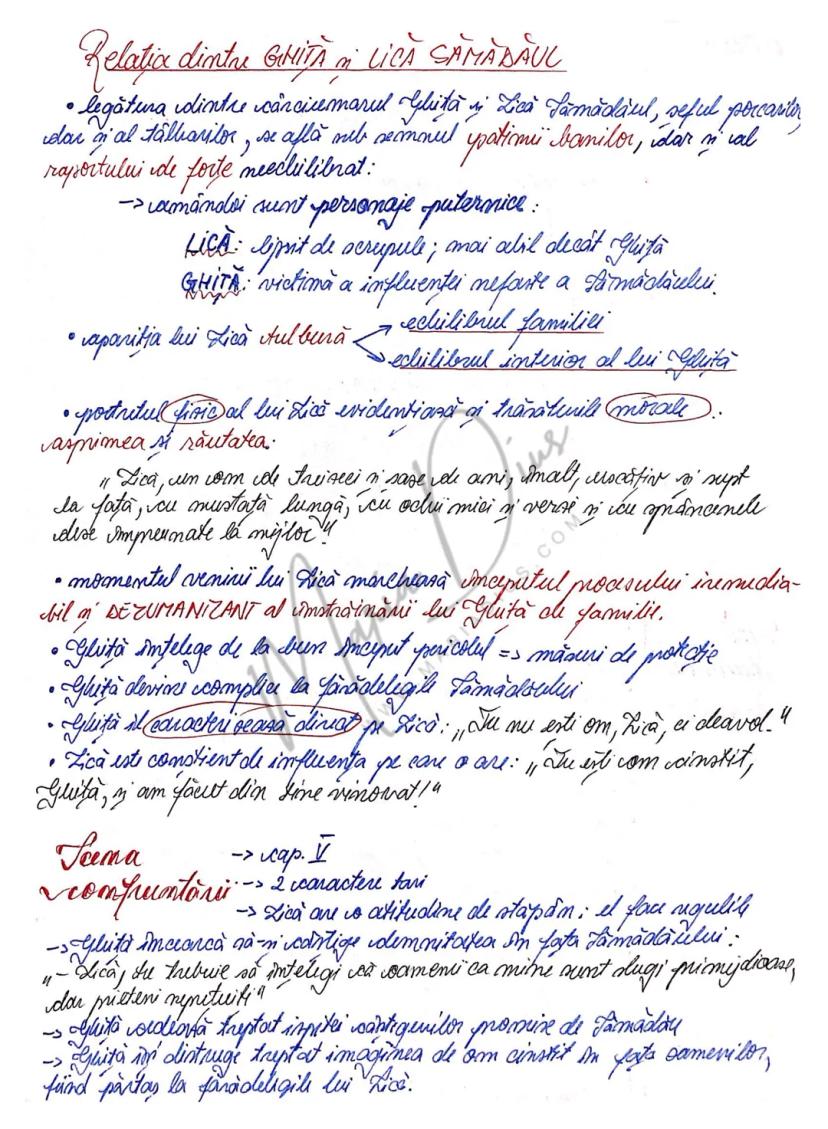 Relația dintre GHIȚĂ și LICĂ SĂMĂDĂUL
• legătura dintre cârciumarul Ghiță și Lică Sămădăul, șeful porcarilor,
dar și al tâlharilor, se află sub semnul patimii banilor, dar și al
raportului de forțe neechilibrat:
-> amândoi sunt personaje puternice:
LICĂ: lipsit de scrupule; mai abil decât Ghiță
GHIȚĂ: victimă a influenței nefaste a Sămădăului.
• apariția lui Lică tulbură
echilibrul familiei
echilibrul interior al lui Ghiță
• portretul fizic al lui Lică evidențiază și trăsăturile morale:
asprimea și răutatea.
„Lică, un om de treizeci și șase de ani, înalt, uscățiv și supt
la față, cu mustață lungă, cu ochii mici și verzi și cu sprâncenele
dese împreunate la mijloc."
• momentul venirii lui Lică marchează începutul procesului iremedia-
bil și DEZUMANIZANT al înstrăinării lui Ghiță de familie.
• Ghiță înțelege de la bun început pericolul => măsuri de protecție
• Ghiță devine complice la fărădelegile Sămădăului
• Ghiță îl caracterizează direct pe Lică: „Tu nu ești om, Lică, ci deavol."
• Lică este conștient de influența pe care o are: „Tu ești om cinstit,
Ghiță, și am făcut din tine vinovat!"
Scena
confruntării
-> cap. V
-> 2 caractere tari
-> Lică are o atitudine de stăpân; el face regulile
-> Ghiță încearcă să-și câștige demnitatea în fața Sămădăului:
„- Lică, tu trebuie să înțelegi că oamenii ca mine sunt slugi primejdioase,
dar prieteni neprețuiți"
-> Ghiță cedează treptat ispitei câștigurilor promise de Sămădău
-> Ghiță își distruge treptat imaginea de om cinstit în fața oamenilor,
fiind părtaș la fărădelegile lui Lică.